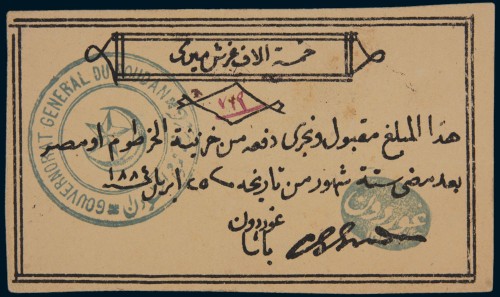 خمسة الاف غرش ميرى
GOUVERNORAT GENERAL DU SOUDAN
هذا المبلغ مقبول ونجرى دفعه من خزينة الخرطوم او مصر
بعد مضى ستة شهور من تاريخه ٢٥ ابريل ١٨٨٤
غوردون
باشا
غوردون